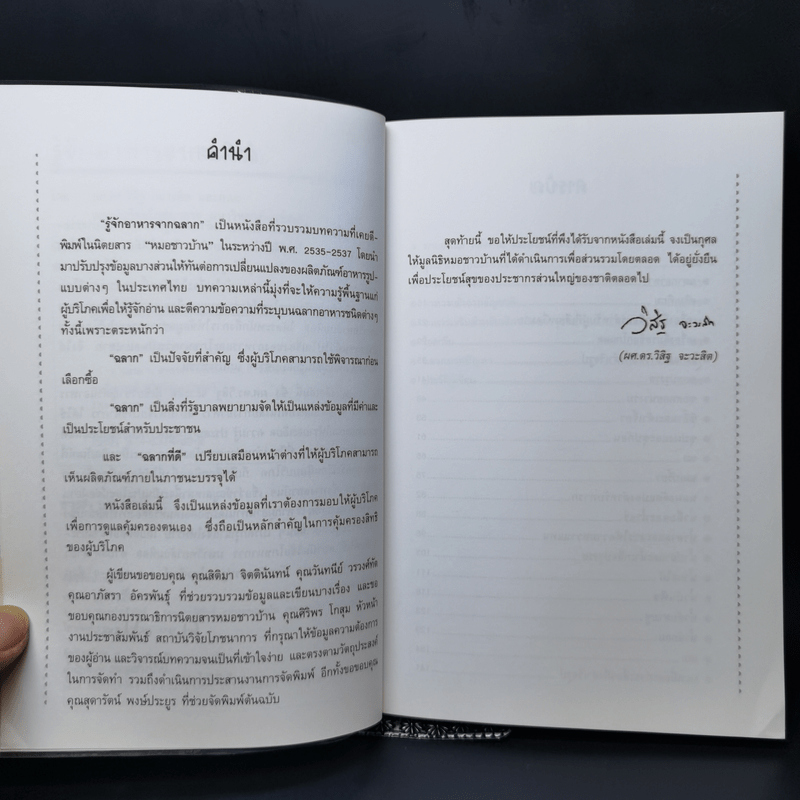 คำนำ
"รู้จักอาหารจากฉลาก" เป็นหนังสือที่รวบรวมบทความที่เคยตี-
พิมพ์ในนิตยสาร "หมอชาวบ้าน" ในระหว่างปี พ.ศ. 2535-2537 โดยนำ
มาปรับปรุงข้อมูลบางส่วนให้ทันต่อการเปลี่ยนแปลงของผลิตภัณฑ์อาหารรูป-
แบบต่างๆ ในประเทศไทย บทความเหล่านี้มุ่งที่จะให้ความรู้พื้นฐานแก่
ผู้บริโภคเพื่อให้รู้จักอ่าน และตีความข้อความที่ระบุบนฉลากอาหารชนิดต่างๆ
ทั้งนี้เพราะตระหนักว่า
"ฉลาก" เป็นปัจจัยที่สำคัญ ซึ่งผู้บริโภคสามารถใช้พิจารณาก่อน
เลือกซื้อ
"ฉลาก" เป็นสิ่งที่รัฐบาลพยายามจัดให้เป็นแหล่งข้อมูลที่มีค่าและ
เป็นประโยชน์สำหรับประชาชน
และ "ฉลากที่ดี" เปรียบเสมือนหน้าต่างที่ให้ผู้บริโภคสามารถ
เห็นผลิตภัณฑ์ภายในภาชนะบรรจุได้
หนังสือเล่มนี้ จึงเป็นแหล่งข้อมูลที่เราต้องการมอบให้ผู้บริโภค
เพื่อการดูแลคุ้มครองตนเอง ซึ่งถือเป็นหลักสำคัญในการคุ้มครองสิทธิ
ของผู้บริโภค
ผู้เขียนขอขอบคุณ คุณสิติมา จิตตินันทน์ คุณวันทนีย์ วรวงศ์ทัด
คุณอาภัสรา อัครพันธุ์ ที่ช่วยรวบรวมข้อมูลและเขียนบางเรื่อง และขอ
ขอบคุณกองบรรณาธิการนิตยสารหมอชาวบ้าน คุณศิริพร โกสุม หัวหน้า
งานประชาสัมพันธ์ สถาบันวิจัยโภชนาการ ที่กรุณาให้ข้อมูลความต้องการ
ของผู้อ่าน และวิจารณ์บทความจนเป็นที่เข้าใจง่าย และตรงตามวัตถุประสงค์
ในการจัดทำ รวมถึงดำเนินการประสานงานการจัดพิมพ์ อีกทั้งขอขอบคุณ
คุณสุดารัตน์ พงษ์ประยูร ที่ช่วยจัดพิมพ์ต้นฉบับ
สุดท้ายนี้ ขอให้ประโยชน์ที่พึงได้รับจากหนังสือเล่มนี้ จงเป็นกุศล
ให้มูลนิธิหมอชาวบ้านที่ได้ดำเนินการเพื่อส่วนรวมโดยตลอด ได้อยู่ยั่งยืน
เพื่อประโยชน์สุขของประชากรส่วนใหญ่ของชาติตลอดไป
วิสิฐ จะวะสิต
(ผศ.ดร.วิสิฐ จะวะสิต)